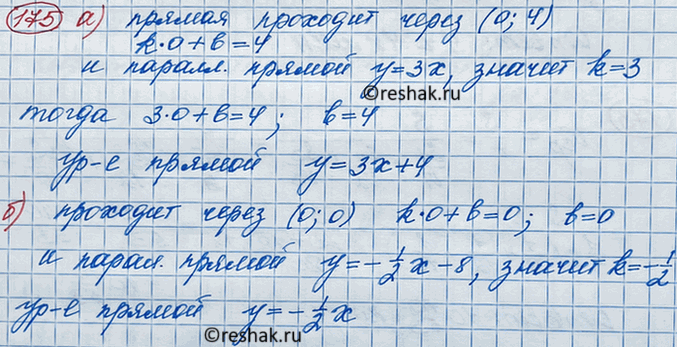 175 а) прямая проходит через (0; 4)
k·0+b=4
и паралл. прямой y=3x, значит k=3
©reshak.ru
тогда 3·0+b=4; b=4
ур-е прямой y=3x+4
б) проходит через (0; 0) k·0+b=0; b=0
и парал. прямой y=-1/2x-8, значит k=-1/2
ур-е прямой y=-1/2x
©reshak.ru